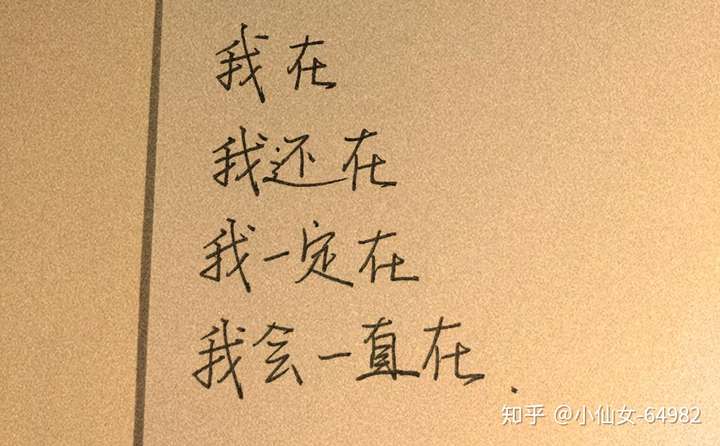 我在
我还在
我一定在
我会一直在.
知乎 @小仙女-64982